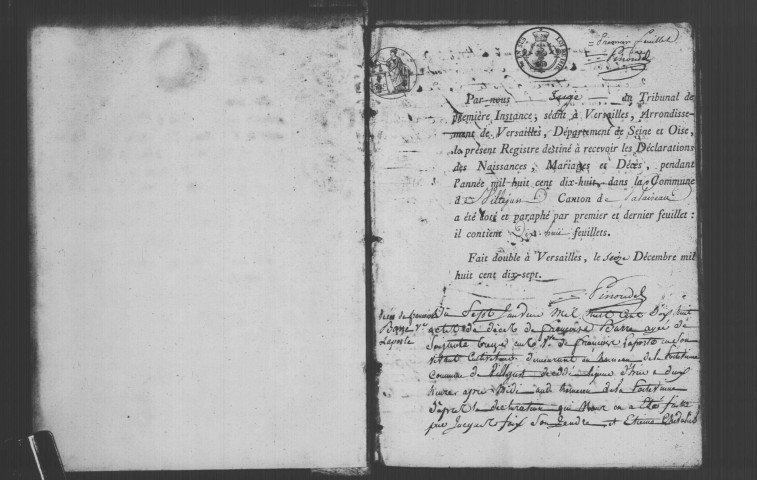 Premier feuillet
Pinondel
Par nous Juge du Tribunal de
première Instance, séant à Versailles, Arrondisse-
ment de Versailles, Département de Seine et Oise,
le présent Registre destiné à recevoir les Déclarations
des Naissances, Mariages et Décès, pendant
l'année mil huit cent dix-huit, dans la Commune
de Villejust Canton de Palaiseau
a été coté et paraphé par premier et dernier feuillet :
il contient Dix huit feuillets.
Fait double à Versailles, le seize Décembre mil
huit cent dix-sept.
Pinondel
Décès de françoise
Barre Ve
Laporte
Du Sept Janvier Mil huit cent Dix huit
acte de décès de françoise Barre agée de
Soixante treize ans Ve de françois Laporte en son
vivant Cultivateur demeurant au hameau de la
commune de Villejust décédé d'hier a deux
heures après Midi audit hameau de la
d'après la declaration qui Nous en a été faite
par Jacques son Gendre et Etienne